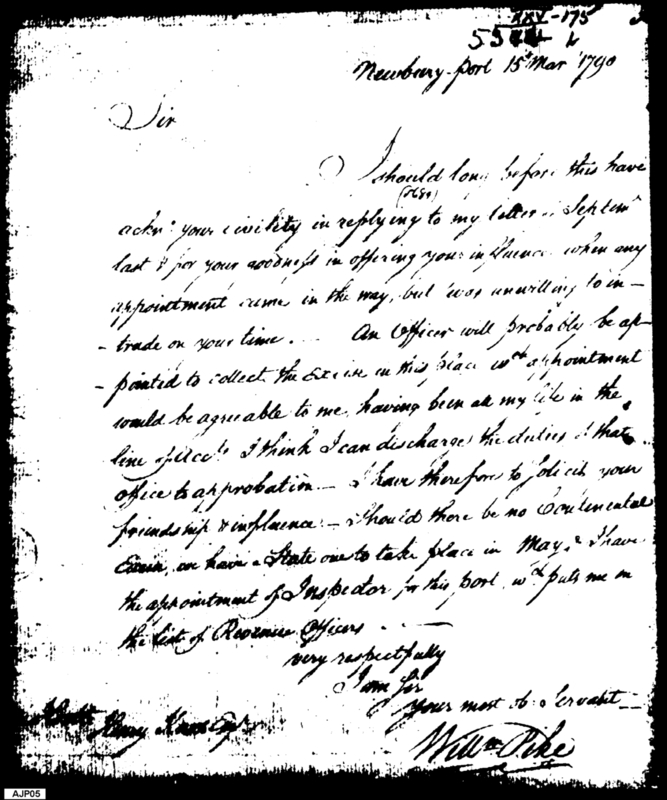 XXV-175
Newbury-port 15th Mar 1790
Sir
I should long before this have
ackn.d your civility in replying to my letter Septemr
last & for your goodness in offering your influence when any
appointment came in the way, but was unwilling to in-
-trude on your time. — An Officer will probably be ap-
-pointed to collect the Excise in this place wch appointment
would be agreable to me, having been all my life in the
line of I think I can discharge the duties of that
office to approbation — I have therefore to solicit your
friendship & influence — Should there be no Continental
Excise, we have a State one to take place in May, & I have
the appointment of Inspector for this port, wch puts me on
the list of Revenue Officers —
very respectfully
I am Sir
Your most ob. Servant —
Henry Knox Esqr
Willm Pike
AJP05